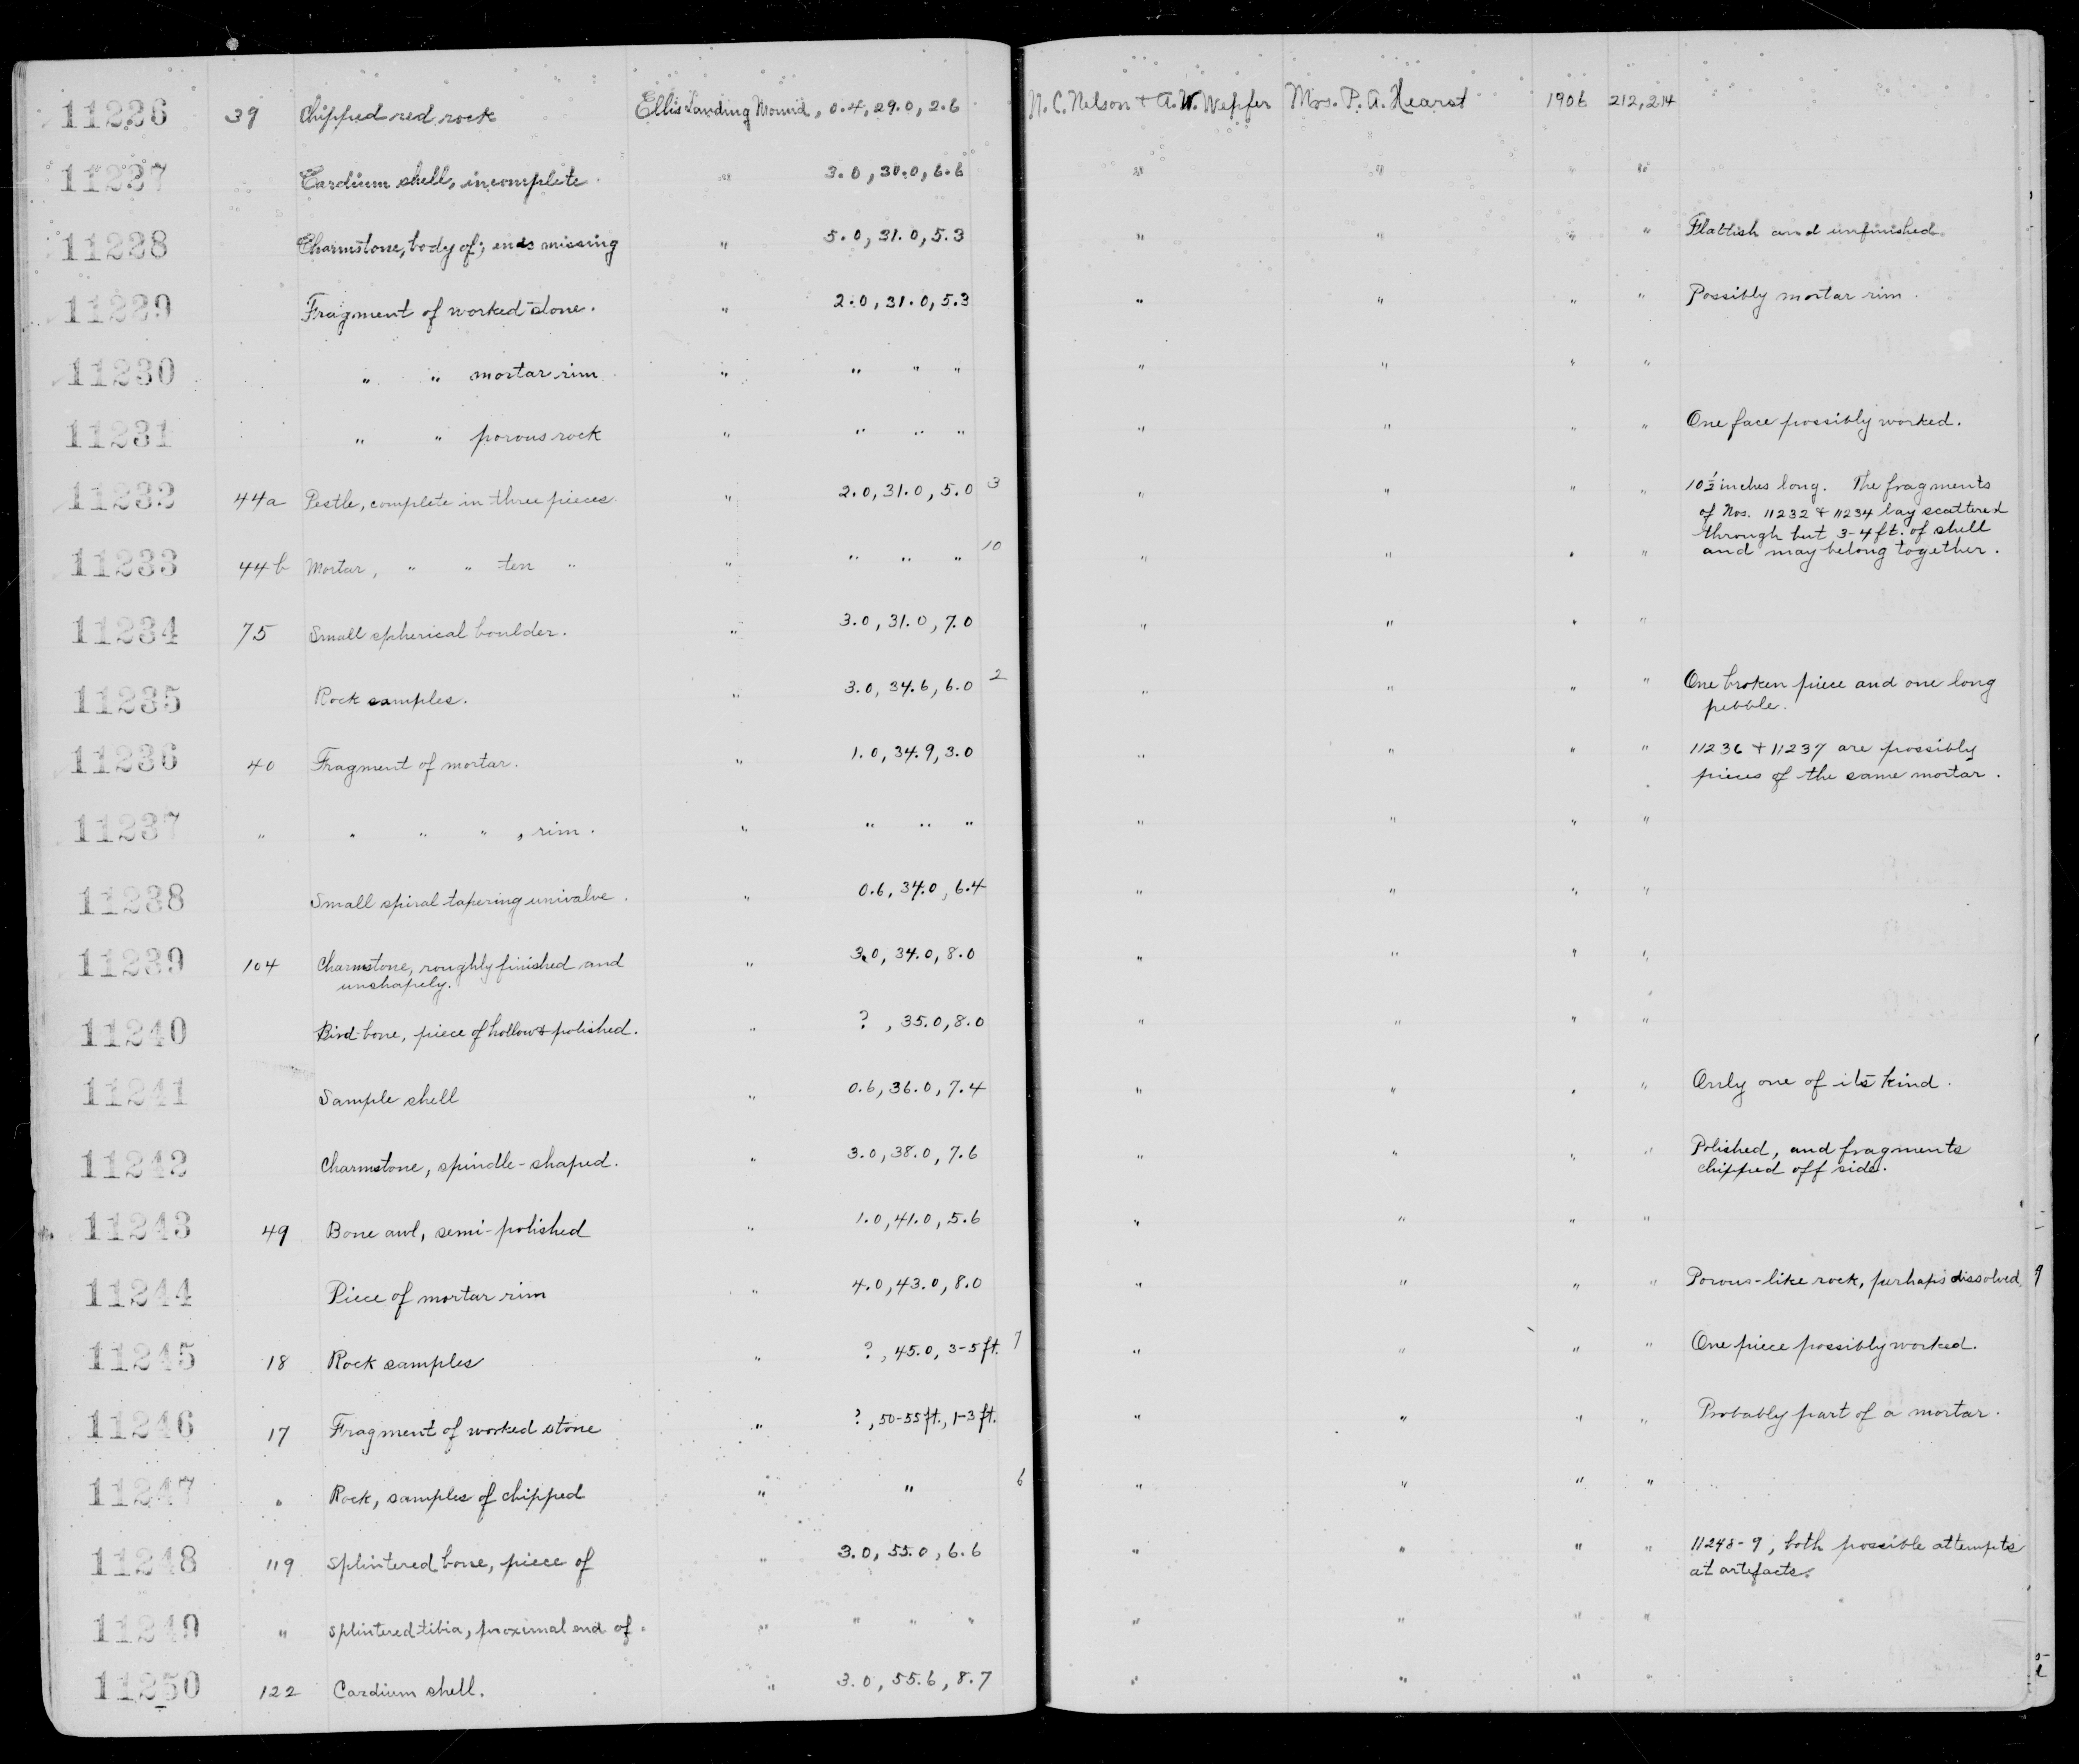 11226 39 Chipped red rock Ellis Landing Mound, 0.4, 29.0, 2.6 N. C. Nelson & A. W. Wepfer Mrs. P. A. Hearst 1906 212, 214
11227 Cardium shell, incomplete. " 3.0, 30.0, 6.6 " " " "
11228 Charmstone, body of; ends missing " 5.0, 31.0, 5.3 " " " " Flattish and unfinished.
11229 Fragment of worked stone. " 2.0, 31.0, 5.3 " " " " Possibly mortar rim.
11230 " " mortar rim. " " " " " " " "
11231 " " porous rock " " " " " " " " One face possibly worked.
11232 44a Pestle, complete in three pieces. " 2.0, 31.0, 5.0 3 " " " " 10 1/2 inches long. The fragments
of Nos. 11232 & 11234 lay scattered
through but 3-4 ft. of shell
11233 44b Mortar, " " ten " " " " " 10 " " " " and may belong together.
11234 75 Small spherical boulder. " 3.0, 31.0, 7.0 " " " "
11235 Rock samples. " 3.0, 34.6, 6.0 2 " " " " One broken piece and one long
pebble.
11236 40 Fragment of mortar. " 1.0, 34.9, 3.0 " " " " 11236 & 11237 are possibly
pieces of the same mortar.
11237 " " " " , rim. " " " " " " " "
11238 Small spiral tapering univalve. " 0.6, 34.0, 6.4 " " " "
11239 104 Charmstone, roughly finished and " 3.0, 34.0, 8.0 " " " "
unshapely.
11240 Bird-bone, piece of hollow & polished. " ? , 35.0, 8.0 " " " "
11241 Sample shell " 0.6, 36.0, 7.4 " " " " Only one of its kind.
11242 Charmstone, spindle-shaped. " 3.0, 38.0, 7.6 " " " " Polished, and fragments
chipped off side.
11243 49 Bone awl, semi-polished " 1.0, 41.0, 5.6 " " " "
11244 Piece of mortar rim " 4.0, 43.0, 8.0 " " " " Porous-like rock, perhaps dissolved.
11245 18 Rock samples " ?, 45.0, 3-5 ft. 7 " " " " One piece possibly worked.
11246 17 Fragment of worked stone " ?, 50-55 ft., 1-3 ft. " " " " Probably part of a mortar.
11247 " Rock, samples of chipped " " 6 " " " "
11248 119 Splintered bone, piece of " 3.0, 55.0, 6.6 " " " " 11248-9, both possible attempts
at artefacts.
11249 " Splintered tibia, proximal end of. " " " " " " " "
11250 122 Cardium shell. " 3.0, 55.6, 8.7 " " " "